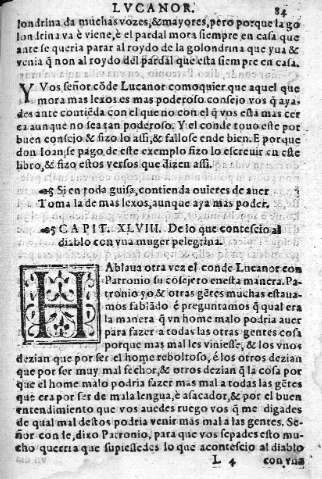 LVCANOR.
84
londrina da muchas vozes, & mayores, pero porque la go
londrina va è viene, è el pardal mora siempre en casa que
ante se queria parar al roydo de la golondrina que yua &
venia q̃ non al roydo del pardal que esta siempre en casa.
Y Vos señor cõde Lucanor comoquier que aquel que
mora mas lexos es mas poderoso consejo vos q̃ aya-
des ante contiẽda con el que no con el q̃ vos està mas cer
ca aunque no sea tan poderoso. Y el conde touo este por
buen consejo & fizo lo assi, & fallose ende bien. E por que
don Ioan se pago, de este exemplo fizo lo escreuir en este
libro, & fizo estos versos que dizen assi.
Si en toda guisa, contienda ouieres de auer
Toma la de mas lexos, aunque aya mas poder.
CAPIT. XLVIII. De lo que contescio al
diablo con vna muger pelegrina.
HAblaua otra vez el conde Lucanor con
Patronio su cõsejero en esta manera. Pa-
tronio yo & otras gẽtes muchas estaua-
mos fablãdo è preguntamos qual era
la manera q̃ vn home malo podria auer
para fazer a todas las otras gentes cosa
porque mas mal les viniesse, & los vnos
dezian que por ser el home reboltoso, è los otros dezian
que por ser muy mal fechor, & otros dezian q̃ la cosa por
que el home malo podria fazer mas mal a todas las gẽtes
que era por ser de mala lengua, è asacador, & por el buen
entendimiento que vos auedes ruego vos q̃ me digades
de qual mal destos podria venir mas mal a las gentes. Se-
ñor conde, dixo Patronio, para que vos sepades esto mu-
cho querria que supiessedes lo que acontescio al diablo
L 4
con vna